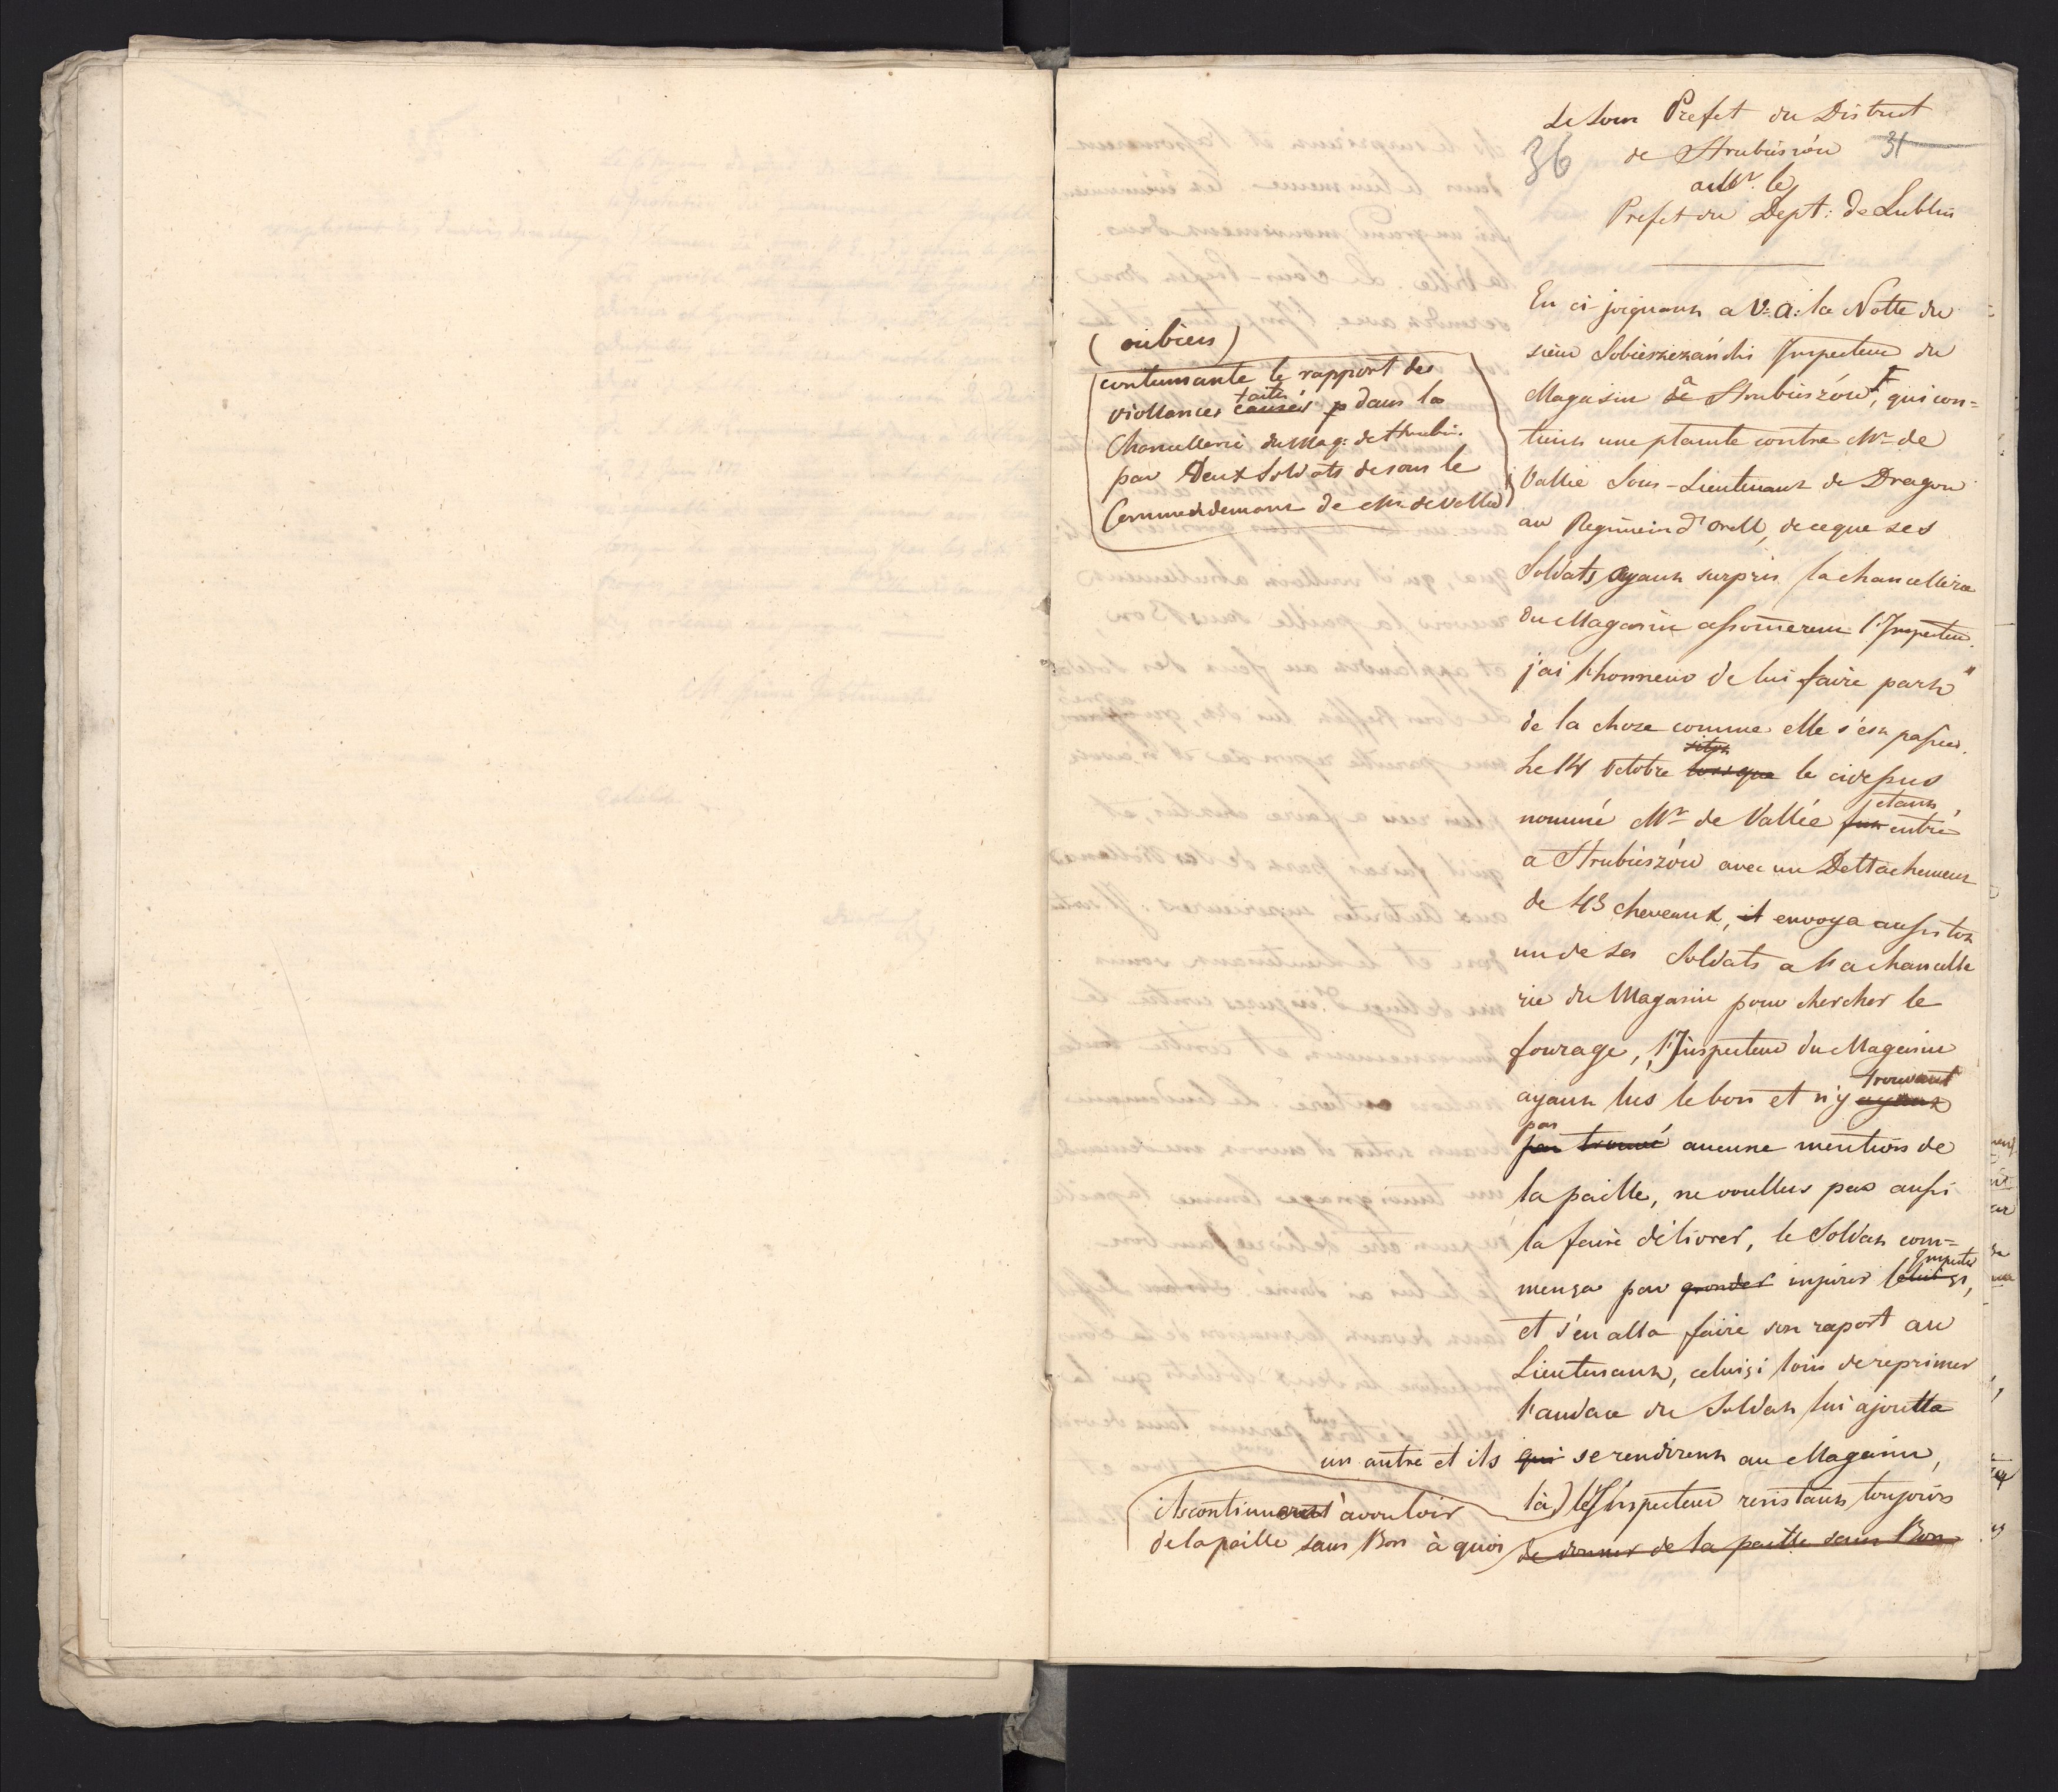 Le Sous Prefet du District
de Hrubieszów
36
31
a Mr. le
Prefet du Dept: de Lublin
En ci-joignant a V. a: la Notte du
sieur Inspecteur du
Magasin de à Hrubieszów, qui con=
tient une plainte contre Mr de
Vallie Sous-Lieutenant de Dragon
au Regiment d'Orell, de ce que ses
Soldats ayant surpris la chancellerie
du Magasin assomerent l'Inspecteur.
j'ai l'honneur de lui faire part
de la chose comme elle s'est passée.
Le 14 Octobre lorsque le cidessus
nommé Mr de Vallée fut etant entré
a Hrubieszów avec un Dettachement
de 43 cheveaux, il envoya aussitot
un de ses Soldats a la chancelle
rie du Magasin pour chercher le
fourage, l'Inspecteur du Magasin
ayant lus le bon et n'y ayant trouvant
pas trouvé pas aucune mention de
la paille, ne voullus pas aussi
la faire délivrer, le Soldat com=
mença par gronder injurier celuiçi, l'Inspecteur
et s'en alla faire son raport au
Lieutenant, celuiçi loin de reprimer
l'audace du Soldat lui ajoutta
un autre et ils qui se rendirent au Magasin,
là l'Inspecteur resistant toujours
de donner de la paille sans Bon
(oubien)
contennante le rapport des
viollances causés faites p dans la
Chancellerie du Mag: de Hrubi.
par Deux Soldats de sous le
Commendement de Mr. de Vallée
ils continuerent à vouloir
de la paille sans Bon à quoi